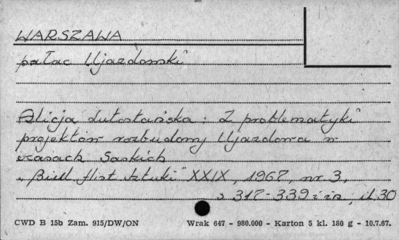 WARSZAWA
pałac Ujazdowski
Alicja Lutostańska: Z problematyki
projektów rozbudowy Ujazdowa w
czasach Saskich
"Biul. Hist Sztuki" XXIX, 1967, nr 3,
s 317-339 il. 30
CWD B 15b Zam. 915/DW/ON Wrak 647 - 980.000 - Karton 5 kl. 180 g - 10.7.67.